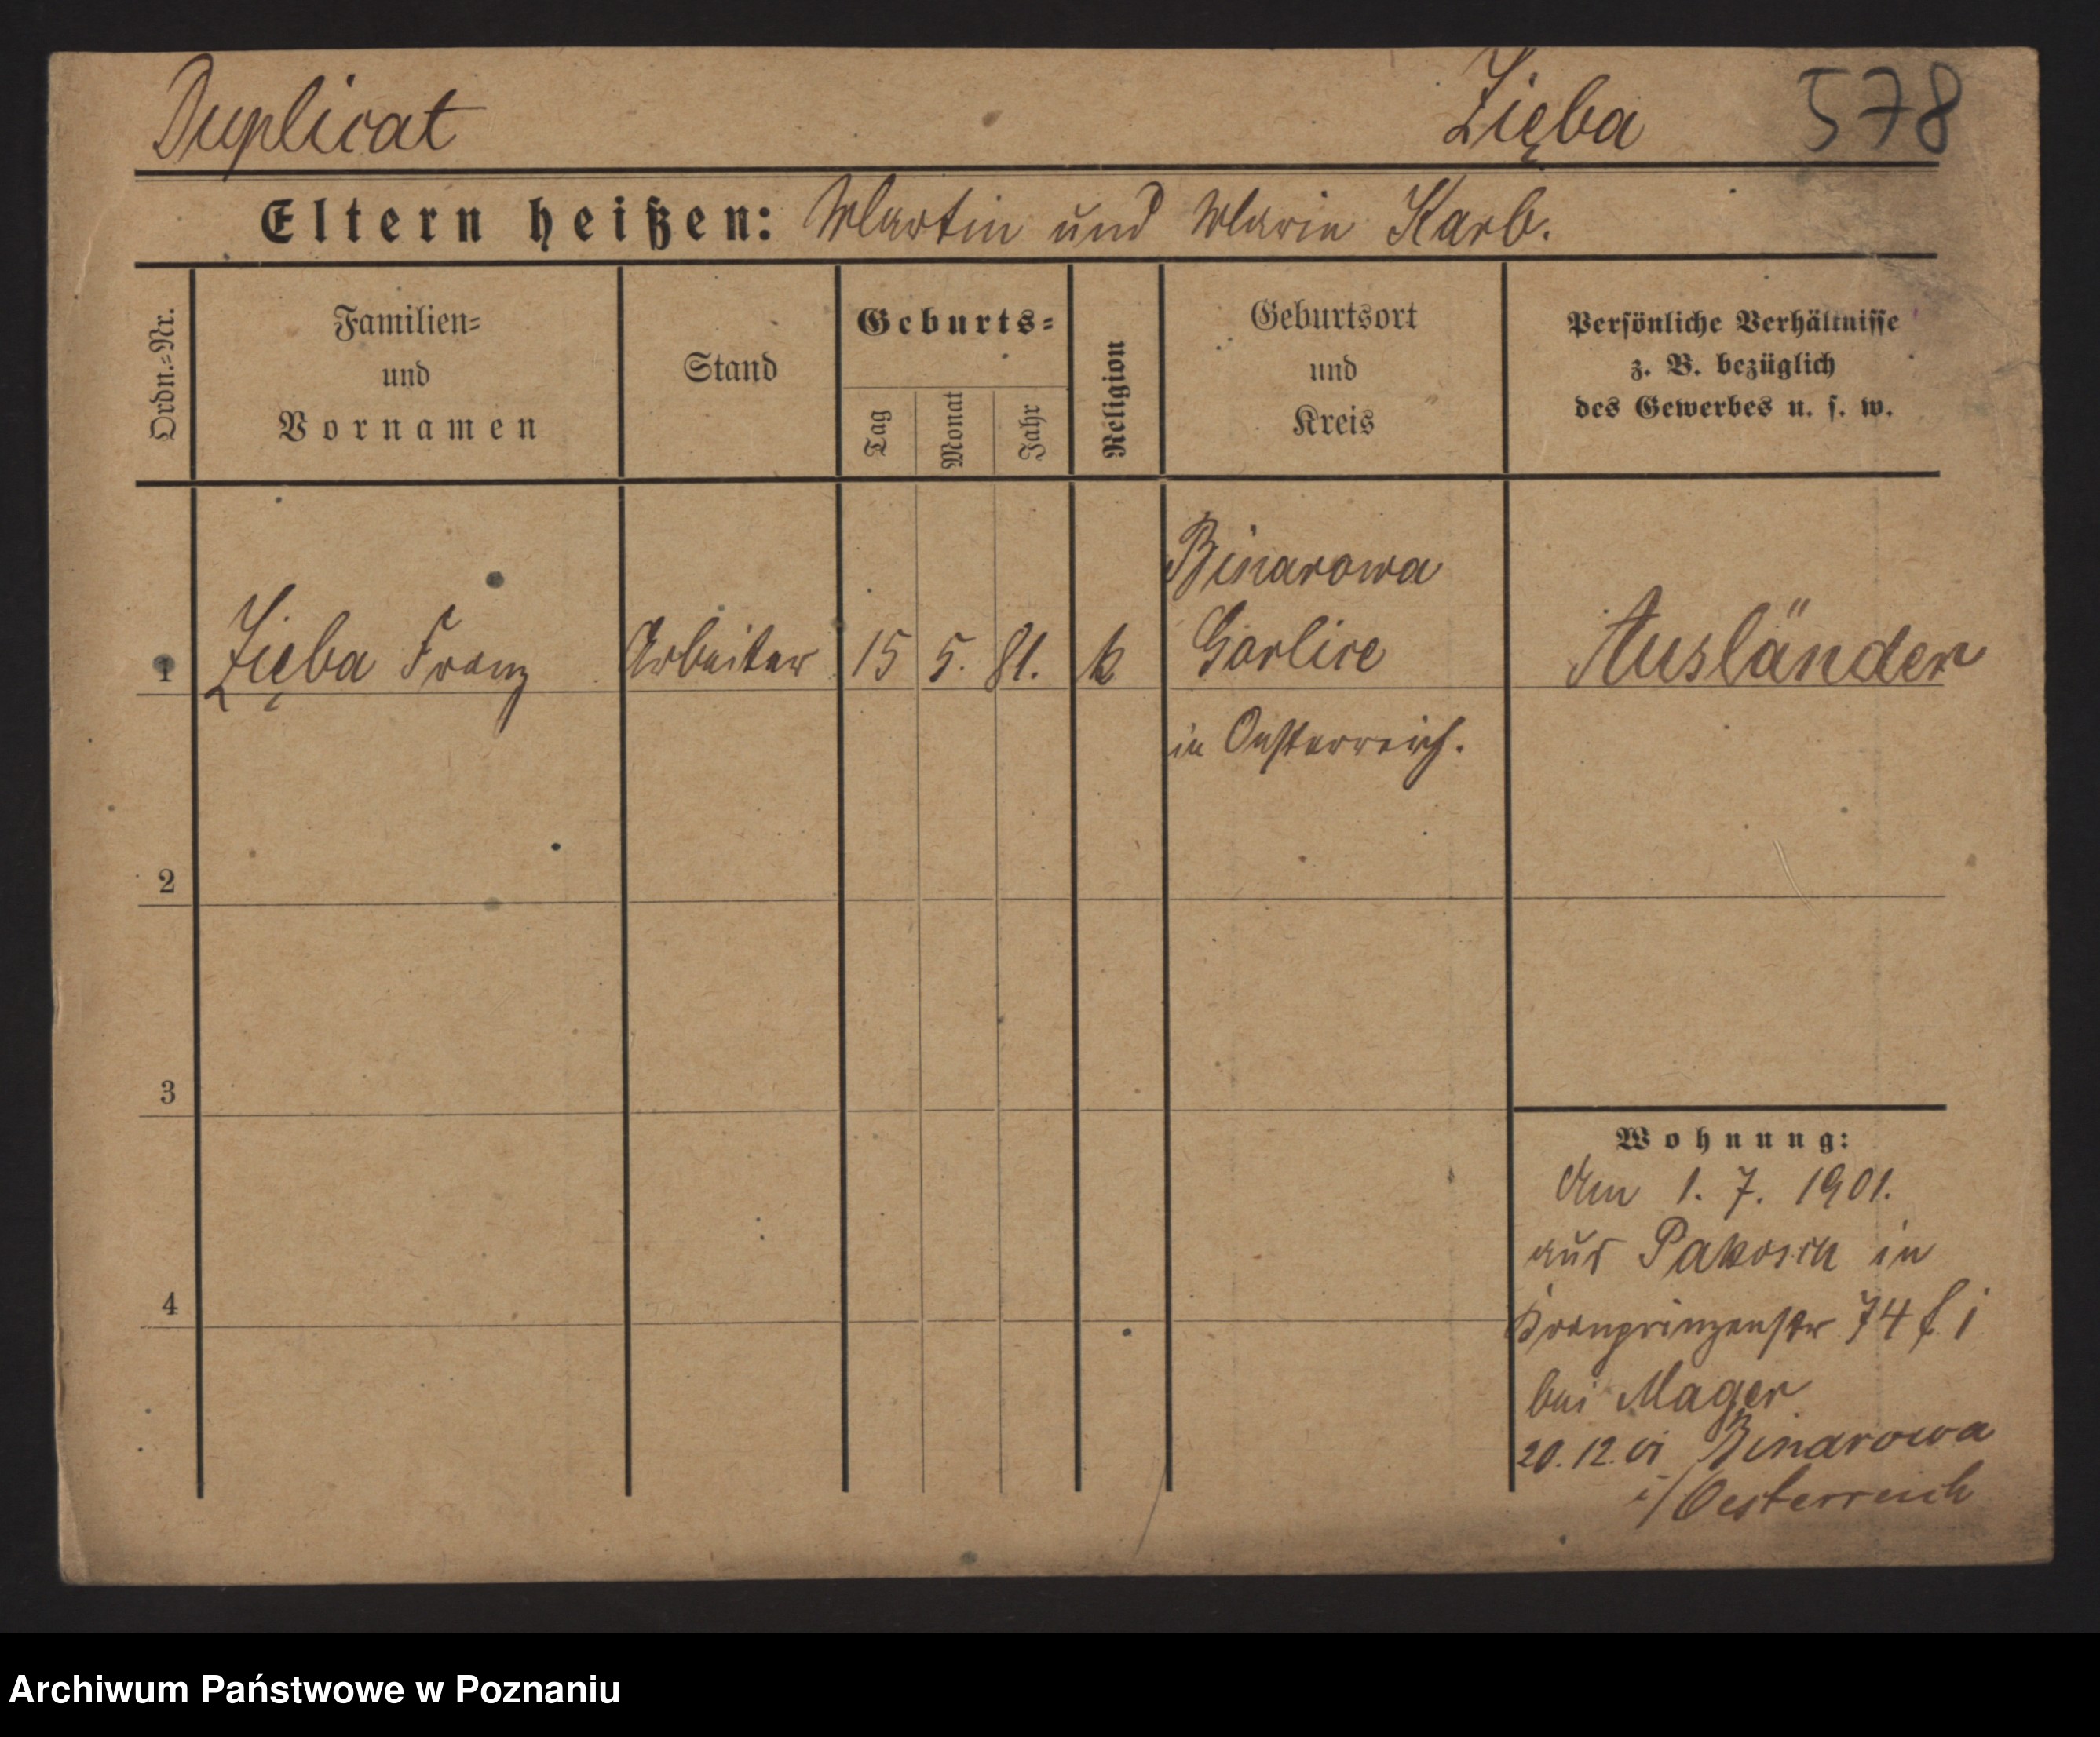 Duplicat Zięba 578
Eltern heißen: Martin und Marie Karb.
Ordn.=Nr.
Familien=
und
Vornamen
Stand
Geburts=
Tag
Monat
Jahr
Religion
Geburtsort
und
Kreis
Persönliche Verhältnisse
z. B. bezüglich
des Gewerbes u. s. w.
Binarowa
1 Zięba Franz Arbeiter 15 5. 81. k Gorlice Ausländer
in Oesterreich.
2
3
Wohnung:
Am 1. 7. 1901.
aus Pakosch in
4
Kronprinzenstr 74
bei Mager
20.12.01 Binarowa
i/Oesterreich
Archiwum Państwowe w Poznaniu